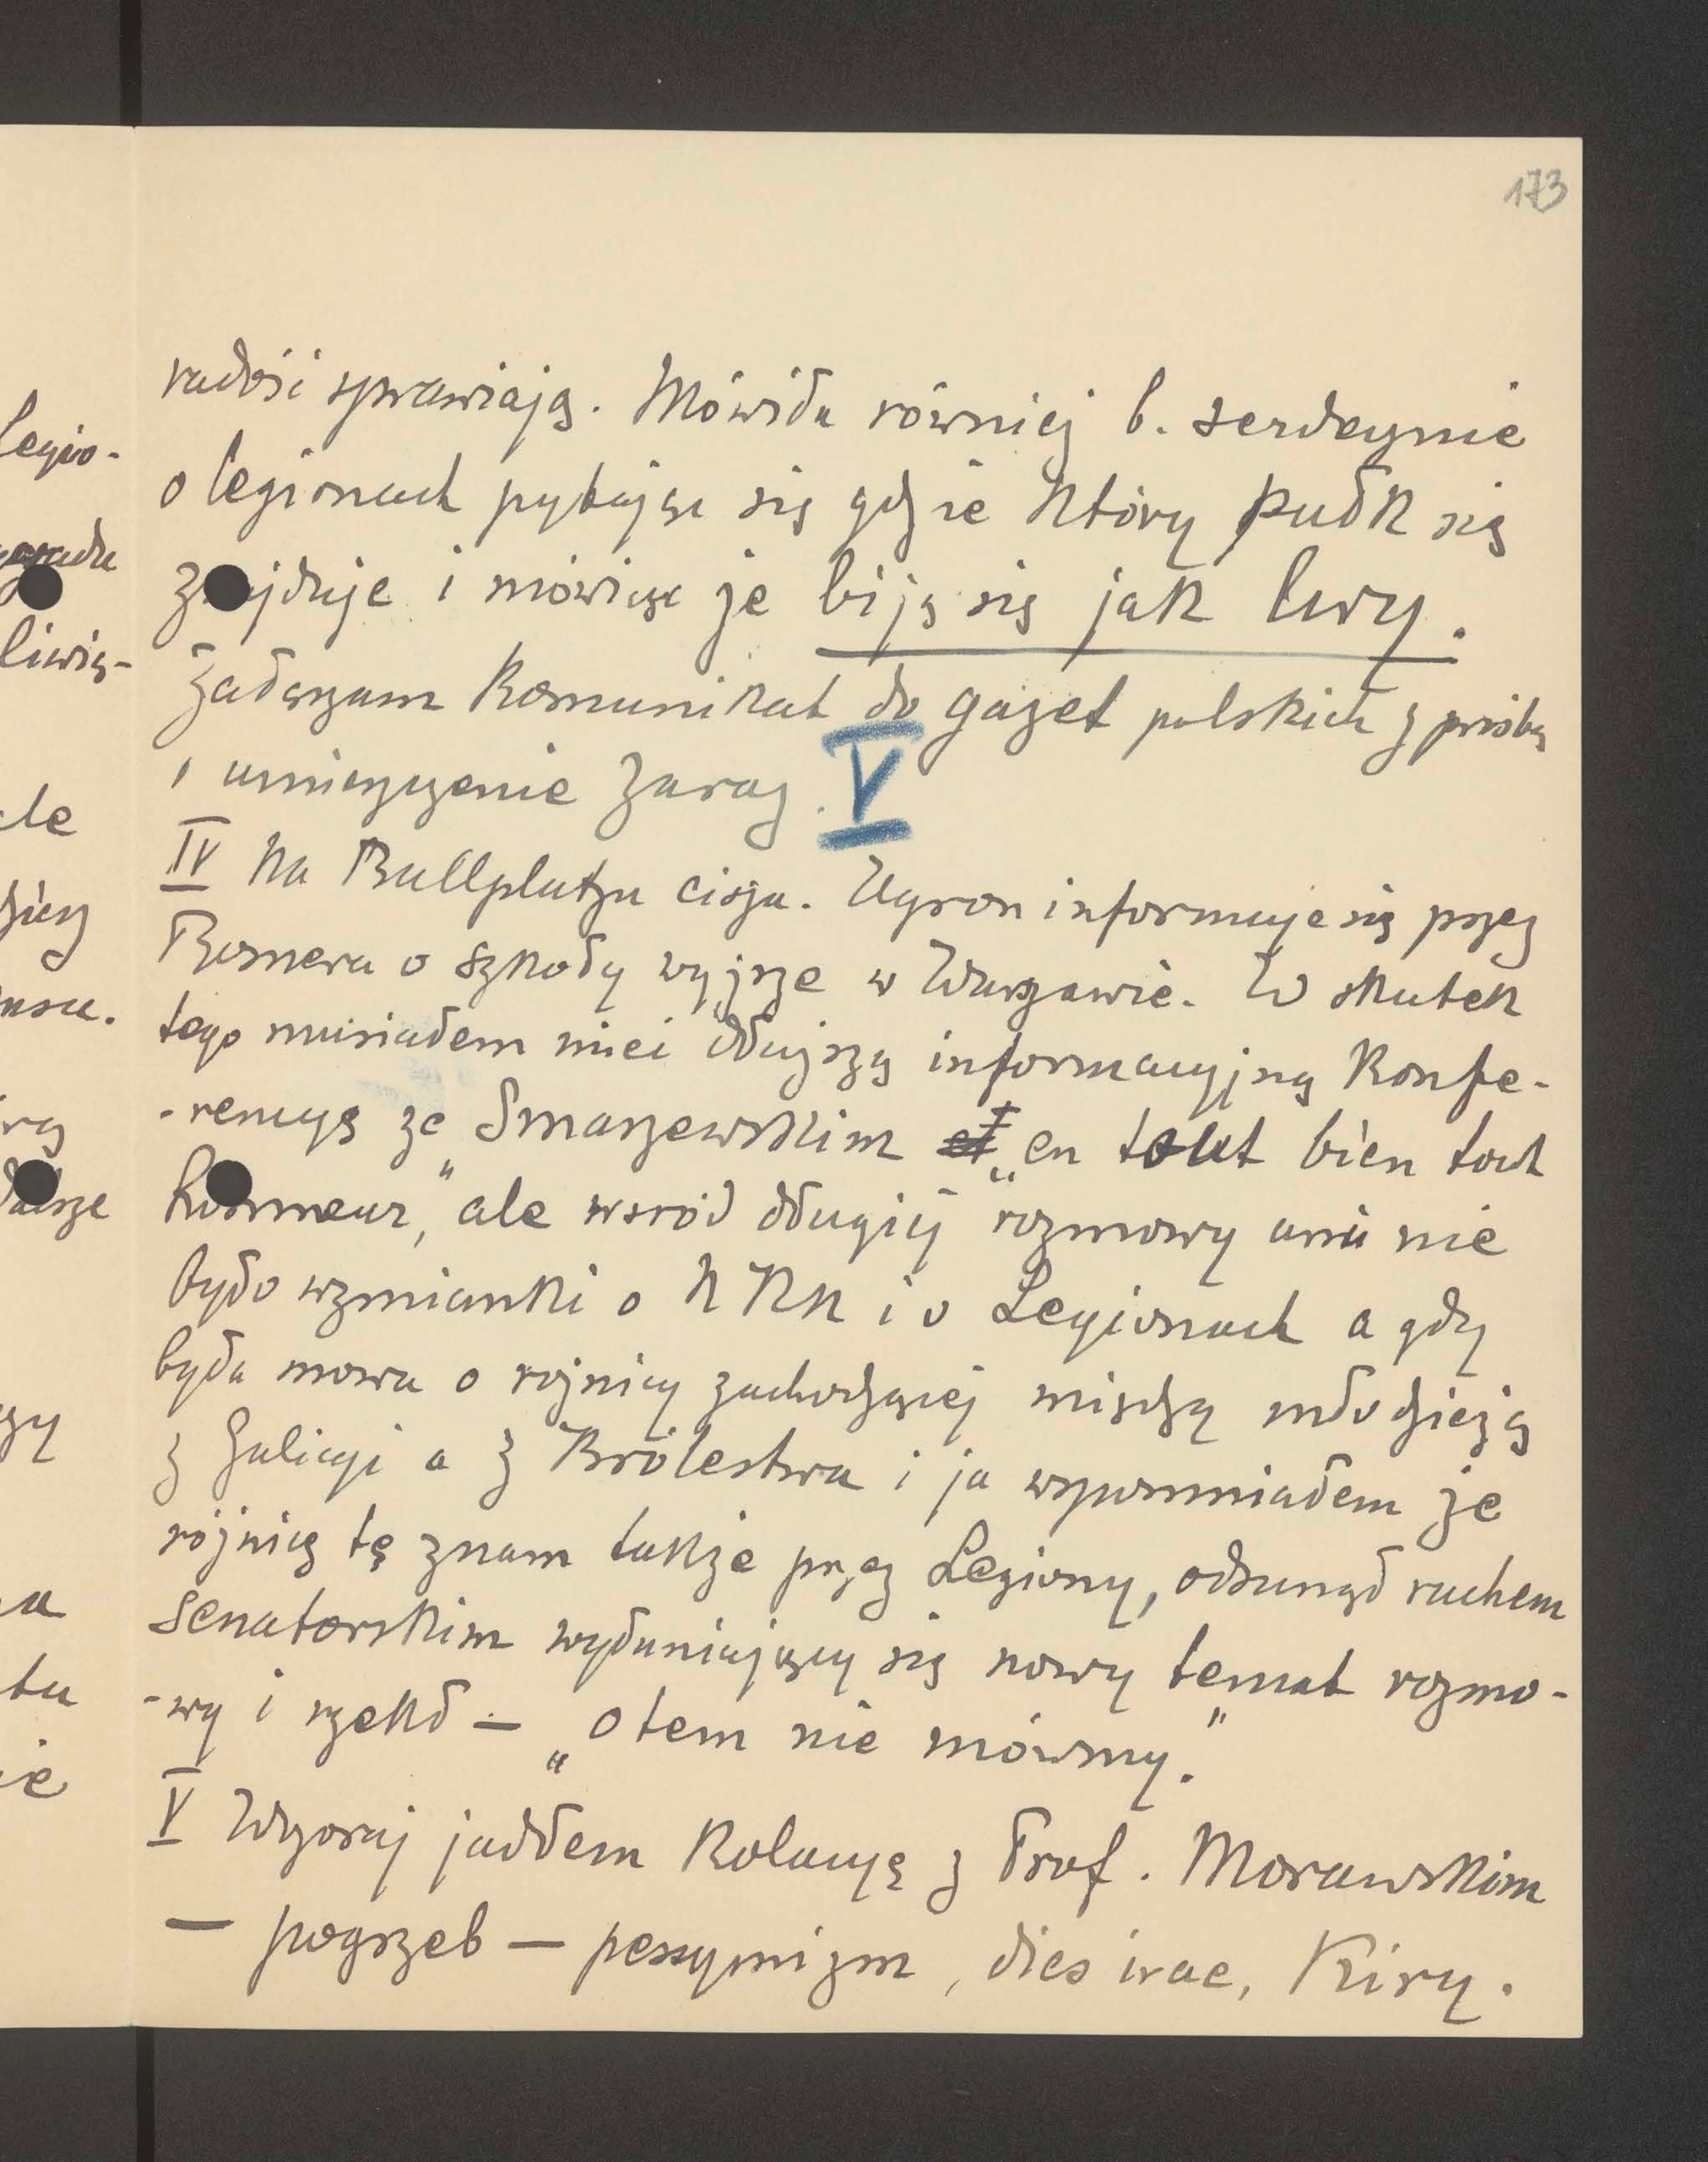 173
radość sprawiają. Mówiła również b. serdecznie
o legionach pytając się gdzie który pułk się
znajduje i mówiąc że biją się jak lwy.
Załączam komunikat do gazet polskich z prośbą
o umieszczenie zaraz. V
IV Na Ballplatzu cisza. Ugron informuje się przez
Romera o szkoły wyższe w Warszawie. W skutek
tego musiałem mieć dłuższą informacyjną konfe-
-rencyę ze Smarzewskim et „en tout bien tout
honneur," ale wsród długiej rozmowy ani nie
było wzmianki o NKN i o Legionach a gdy
była mowa o różnicy zachodzącej między młodzieżą
z Galicyi a z Królestwa i ja wspomniałem że
różnicę tę znam także przez Legiony, odsunął ruchem
senatorskim wyłaniający się nowy temat rozmo-
-wy i rzekł – „o tem nie mówmy."
V Wczoraj jadłem kolacyę z Prof. Morawskim
– pogrzeb – pessymizm, dies irae, Kiry.
Legio-
liwią-
ale
rą
dalsze
czy
na
tu
ie